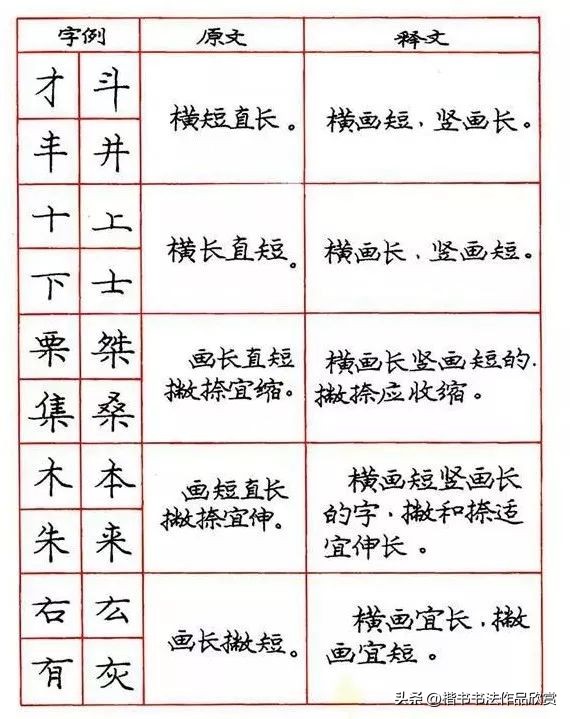 字例 原文 释文
才 斗
丰 井
横短直长。
横画短，竖画长。
十 上
下 士
横长直短。
横画长，竖画短。
栗 桀
集 桑
画长直短
撇捺宜缩。
横画长竖画短的，
撇捺应收缩。
木 本
朱 来
画短直长
撇捺宜伸。
横画短竖画长
的字，撇和捺适
宜伸长。
右 厷
有 灰
画长撇短。
横画宜长，撇
画宜短。
头条 @楷书书法作品欣赏